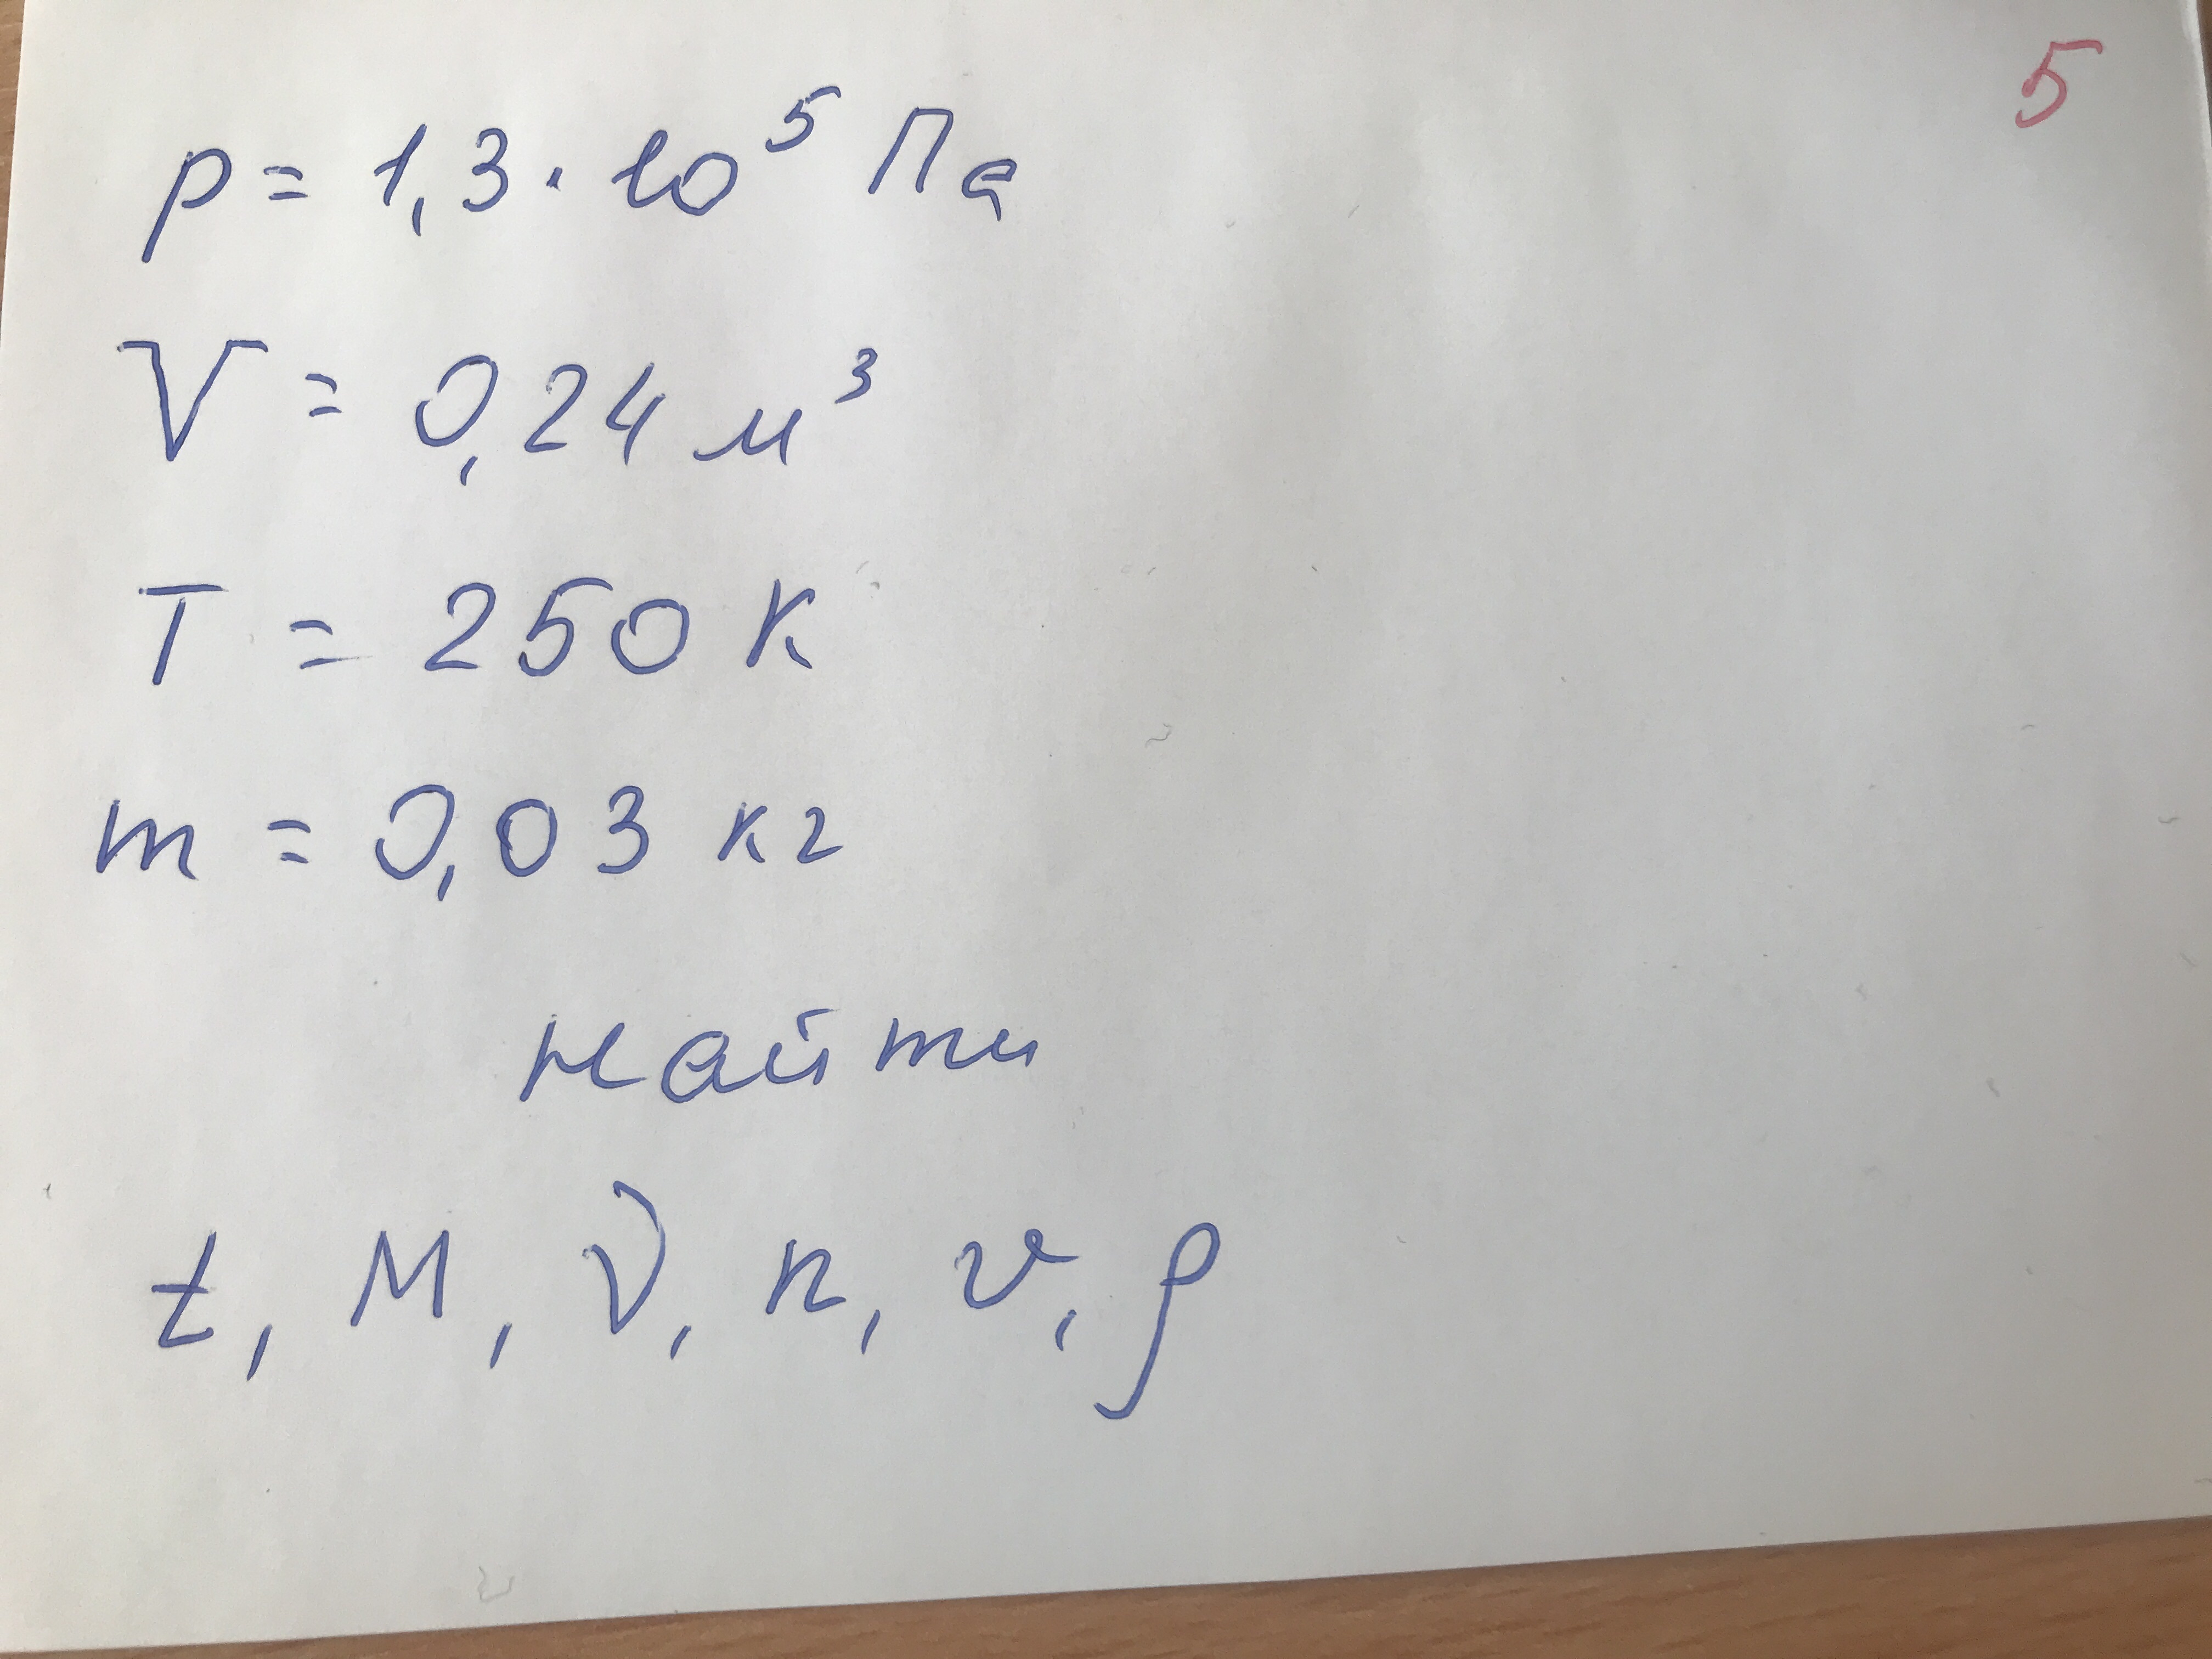 5
p = 1,3 · 10⁵ Па
V = 0,24 м³
T = 250 К
m = 0,03 кг
найти
t, M, ν, n, v, ρ